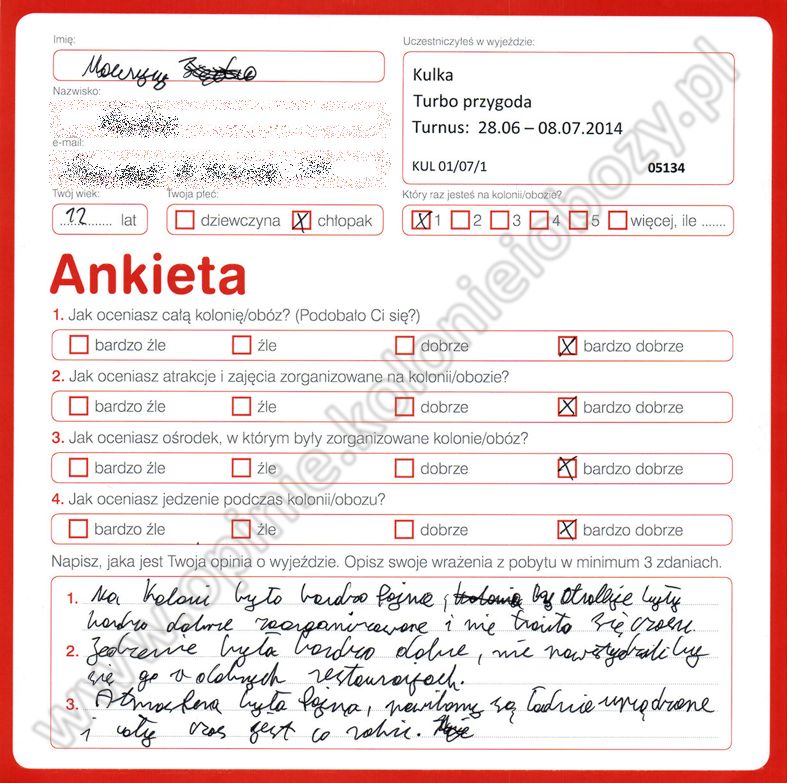 Imię:
Maurycy
Nazwisko:
e-mail:
Twój wiek:
12 lat
Twoja płeć:
dziewczyna X chłopak
Uczestniczyłeś w wyjeździe:
Kulka
Turbo przygoda
Turnus: 28.06 – 08.07.2014
KUL 01/07/1 05134
Który raz jesteś na kolonii/obozie?
X 1 2 3 4 5 więcej, ile .......
Ankieta
1. Jak oceniasz całą kolonię/obóz? (Podobało Ci się?)
bardzo źle źle dobrze X bardzo dobrze
2. Jak oceniasz atrakcje i zajęcia zorganizowane na kolonii/obozie?
bardzo źle źle dobrze X bardzo dobrze
3. Jak oceniasz ośrodek, w którym były zorganizowane kolonie/obóz?
bardzo źle źle dobrze X bardzo dobrze
4. Jak oceniasz jedzenie podczas kolonii/obozu?
bardzo źle źle dobrze X bardzo dobrze
Napisz, jaka jest Twoja opinia o wyjeździe. Opisz swoje wrażenia z pobytu w minimum 3 zdaniach.
1. Na Koloni było bardzo fajnie, atrakcje były
bardzo dobrze zaorganizowane i nie traciło się czasu.
2. Jedzenie było bardzo dobre, nie powstydzili by
się go w dobrych restauracjach.
3. Atmosfera była fajna, pawilony są ładnie urządzone
i cały czas jest co robić.
www.opinie.kolonieiobozy.pl